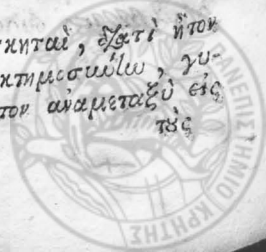 κηταὶ, διατὶ ἦτον
κτημοσύνω, γυ-
τον ἀναμεταξὺ εἰς
τοὺς
ΠΑΝΕΠΙΣΤΗΜΙΟ ΚΡΗΤΗΣ